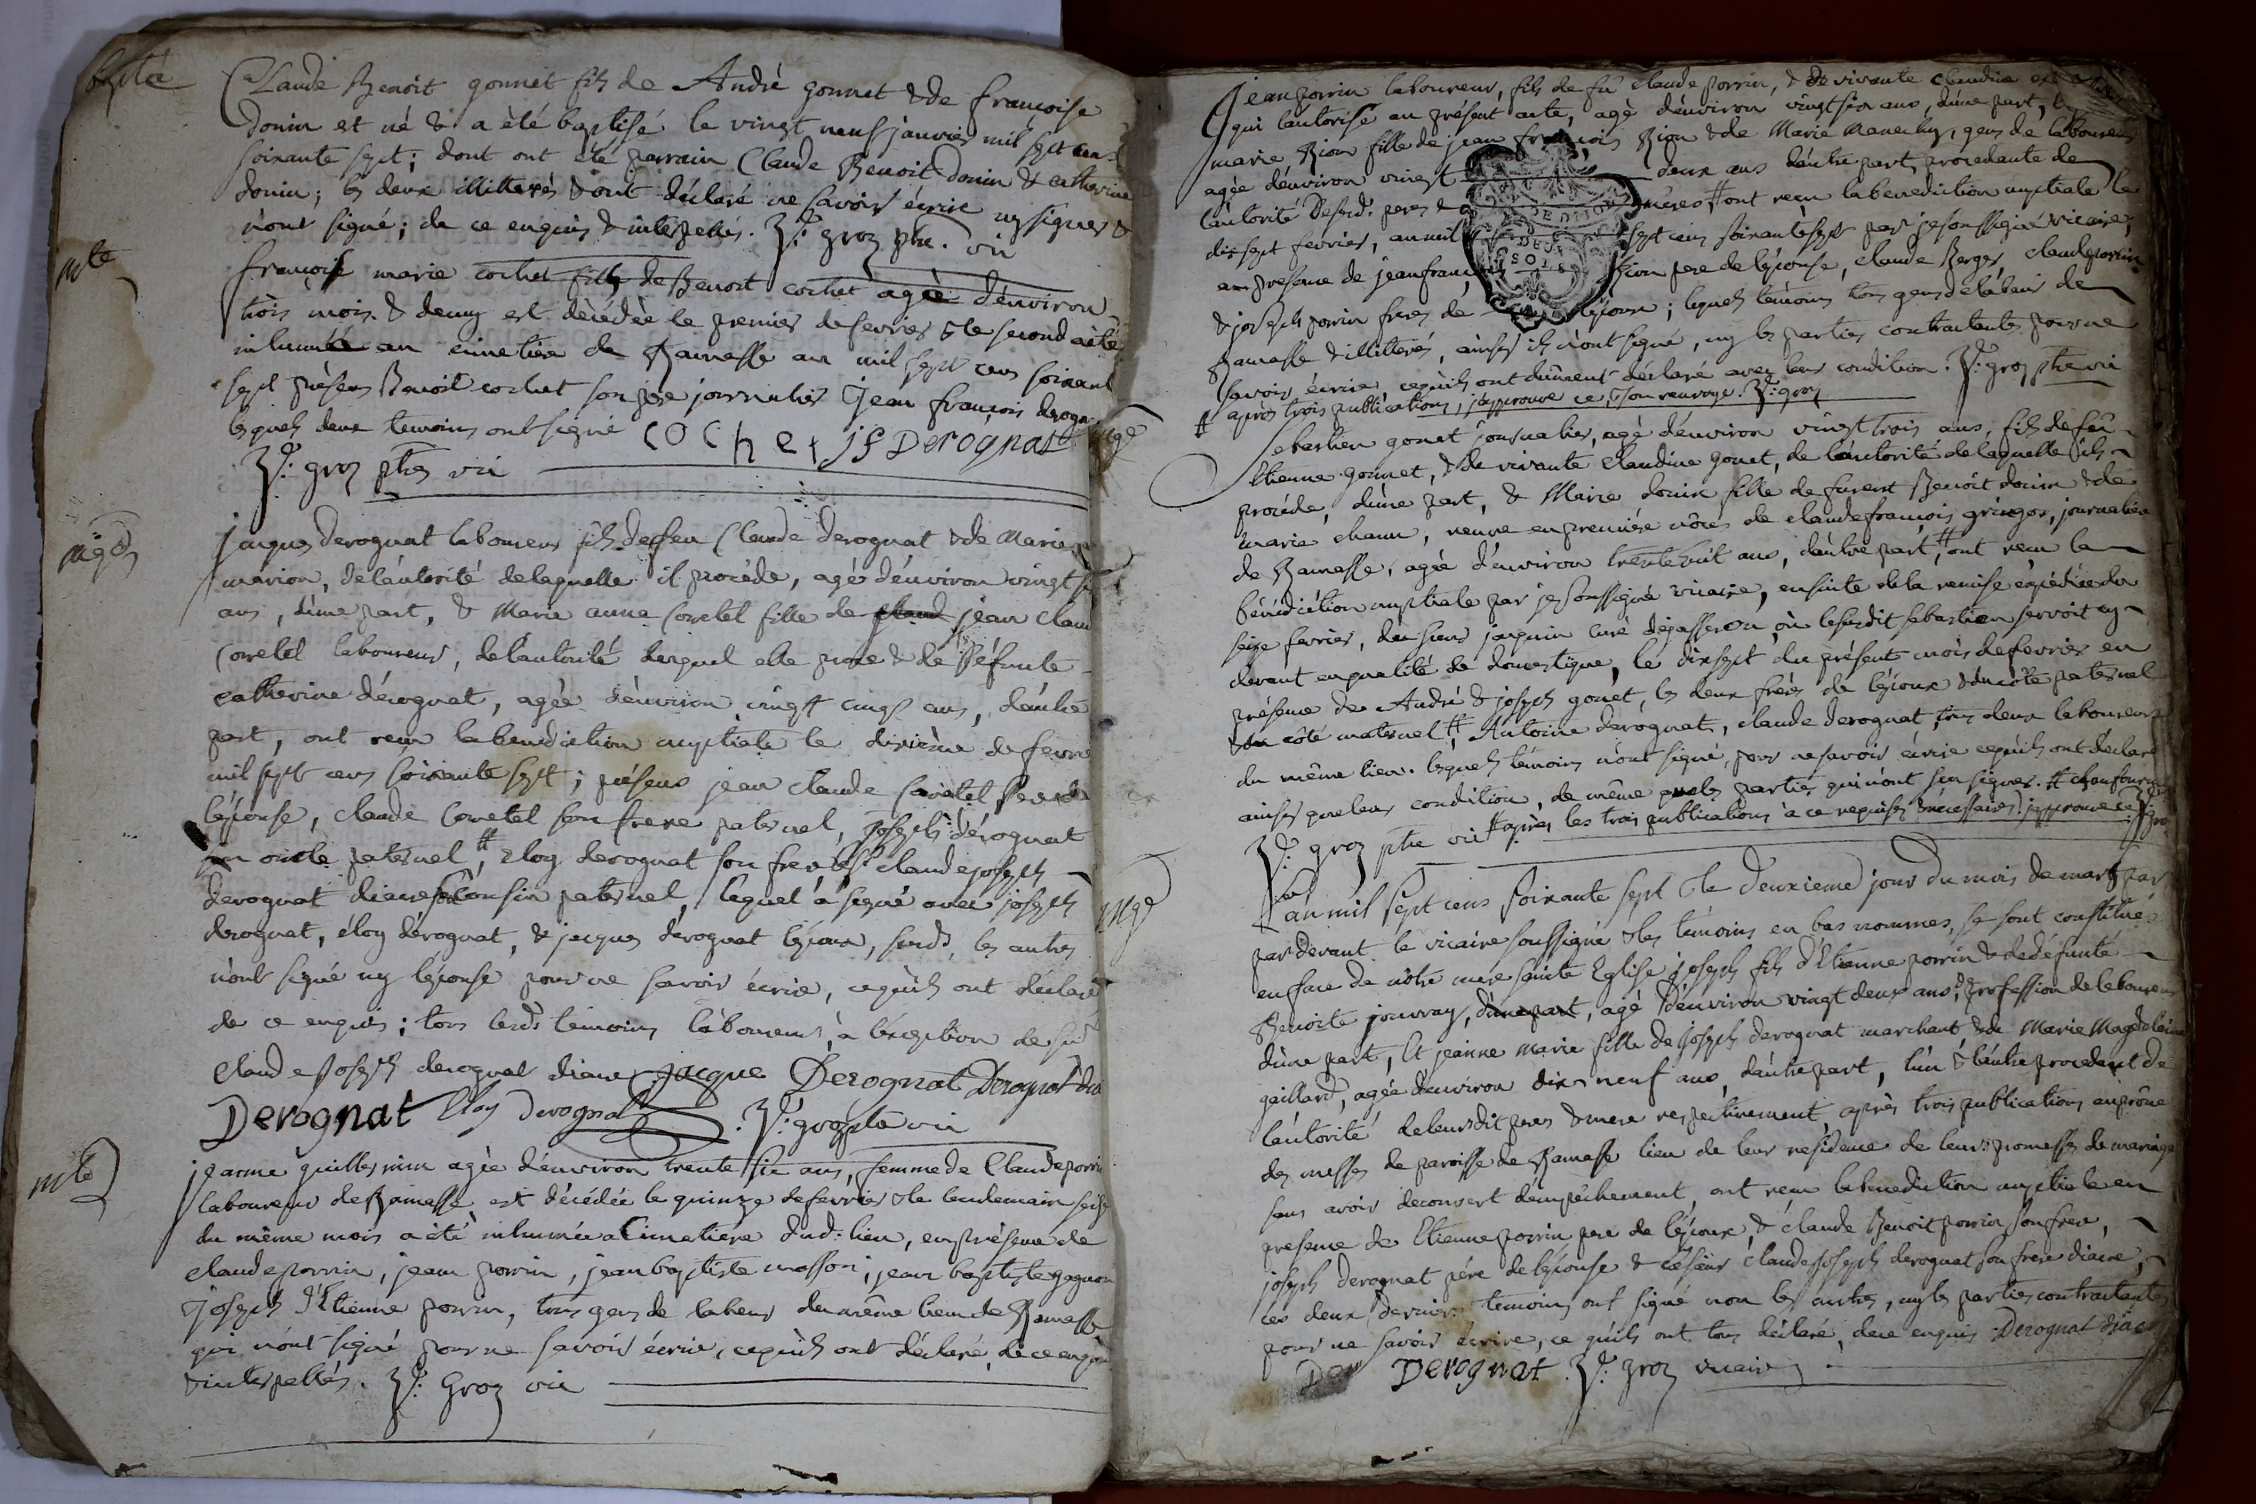 bapte
Claude Benoit gonnet fils de André gonnet & de françoise
donin est né & a été baptisé le vingt neuf janvier mil sept cens
soixante sept; dont ont été parrain Claude Benoit donin & catherine
donin; les deux illitterés & ont déclaré ne savoir écrire ny signer &
n'ont signé; de ce enquis & interpellés. gros ptre. vic
mte
françoise marie cochet fille de Benoit cochet agée d'environ
trois mois & demy est décédée le premier de fevrier & le second a été
inhumée au cimetiere de Ramasse an mil sept cens soixante
sept présens Benoit cochet son père journalier Jean françois derognat
lesquels deux temoins ont signé cochet jf Derognat
gros ptre vic
mge
jacques derognat laboureur fils de feu Claude derognat & de Marie
marion, de l'autorité de laquelle il procéde, agé d'environ vingt
ans, d'une part, & Marie anne Corretel fille de jean claude
Corretel laboureur, de l'autorité duquel elle procede & de déffunte
catherine dérognat, agée d'environ vingt cinq ans, d'autre
part, ont reçu la benediction nuptiale le dixième de fevrier
mil sept cens soixante sept; présens jean claude Corretel pere de
l'épouse, claude Corretel son frere paternel, joseph dérognat
oncle paternel, Eloy derognat son frere & sr claude joseph
derognat diacre son Cousin paternel, lequel a signé avec joseph
derognat, éloy dérognat, & jacques dérognat l'époux, susds, les autres
n'ont signé ny l'épouse pour ne savoir écrire, ce qu'ils ont déclaré
de ce enquis; tous lesds témoins laboureurs, à l'éxception de sr
Claude joseph derognat diacre. jacque Derognat Derognat dia
Derognat Eloy Derognat gros ptre vic
mte
jeanne guillermin agée d'environ trente six ans, femme de Claude perrin
laboureur de Ramasse est décédée le quinze de fevrier & le lendemain seize
du même mois a été inhumée au Cimetiere dud. lieu, en présence de
claude perrin, jean perrin, jean baptiste masson, jean baptiste gagnon
& joseph d'Etienne perrin, tous gens de labeur du même lieu de Ramasse
qui n'ont signé pour ne savoir écrire, ce qu'ils ont déclaré, de ce enquis
& interpellés. Gros vic
Jean perrin laboureur, fils de fû Claude perrin, & de vivante Claudine
qui l'autorise au présent acte, agé d'environ vingt six ans, d'une part, &
marie Rion fille de jean françois Rion & de Marie, gens de laboureur
agée d'environ vingt deux ans d'autre part, procedante de
l'autorité desesd. peres & meres, ont reçu la benediction nuptiale le
dix sept fevrier, an mil sept cens soixante sept par je soussigné vicaire,
en présence de jean françois Rion pere de l'épouse, claude Berger, claude perrin
& joseph perrin freres de l'époux; lesquels témoins tous gens de labeur de
Ramasse & illitterés, ainsi ils n'ont signé, ny les parties contractantes pour ne
savoir écrire, ce qu'ils ont dûment déclaré avec leur condition. gros ptre vic
après trois publications, j'approuve ce, & son renvoye. gros
mge
Sebastien gonet journalier, agé d'environ vingt trois ans, fils de feû
Etienne gonnet, & de vivante Claudine gonet, de l'autorité de laquelle il
procéde, d'une part, & Marie donin fille de furent Benoit donin & de
marie, veuve en premiére nôces de claude françois gringoz, journalier
de Ramasse, agée d'environ trente huit ans, d'autre part, ont reçu la
bénédiction nuptiale par je soussigné vicaire, ensuite de la remise expédiée du
seize fevrier, du sieur jaquin curé, où le susdit sebastien servoit cy
devant en qualité de domestique, le dix sept du présent mois de fevrier en
présence de André & joseph gonet, les deux fréres de l'époux & du côté paternel
côté maternel, Antoine derognat, claude derognat, tous deux laboureurs
du même lieu. lesquels témoins n'ont signé, pour ne savoir écrire ce qu'ils ont déclaré
ainsi que leur condition, de même que les parties qui n'ont su signer.
gros ptre vic après les trois publications à ce requises & nécessaires, j'approuve ce
mge
L'an mil sept cens soixante sept & le deuxieme jour du mois de mars par
pardevant le vicaire soussigné & les témoins en bas nommés, se sont constitués
en face de nôtre mere sainte Eglise joseph fils d'Etienne perrin & de défunte
Benoite jouvray, d'une part, agé d'environ vingt deux ans, profession de laboureur
d'une part, Et jeanne Marie fille de joseph derognat marchant & de Marie Magdelaine
gaillard, agée d'environ dix neuf ans, d'autre part, l'un & l'autre procedant de
l'autorité de leursdit peres & mere respectivement, après trois publications au prône
des messes de paroisse de Ramasse lieu de leur residence de leurs promesses de mariage
sans avoir decouvert d'empêchement, ont reçu la benediction nuptiale en
presence de Etienne perrin pere de l'époux, & claude Benoit perrin son frere,
joseph derognat pére de l'épouse & sieur Claude joseph derognat son frere diacre,
ces deux derniers temoins ont signé non les autres, ny les parties contractantes
pour ne savoir écrire, ce qu'ils ont tous déclaré, de ce enquis. Derognat diacre
Derognat. gros vicaire